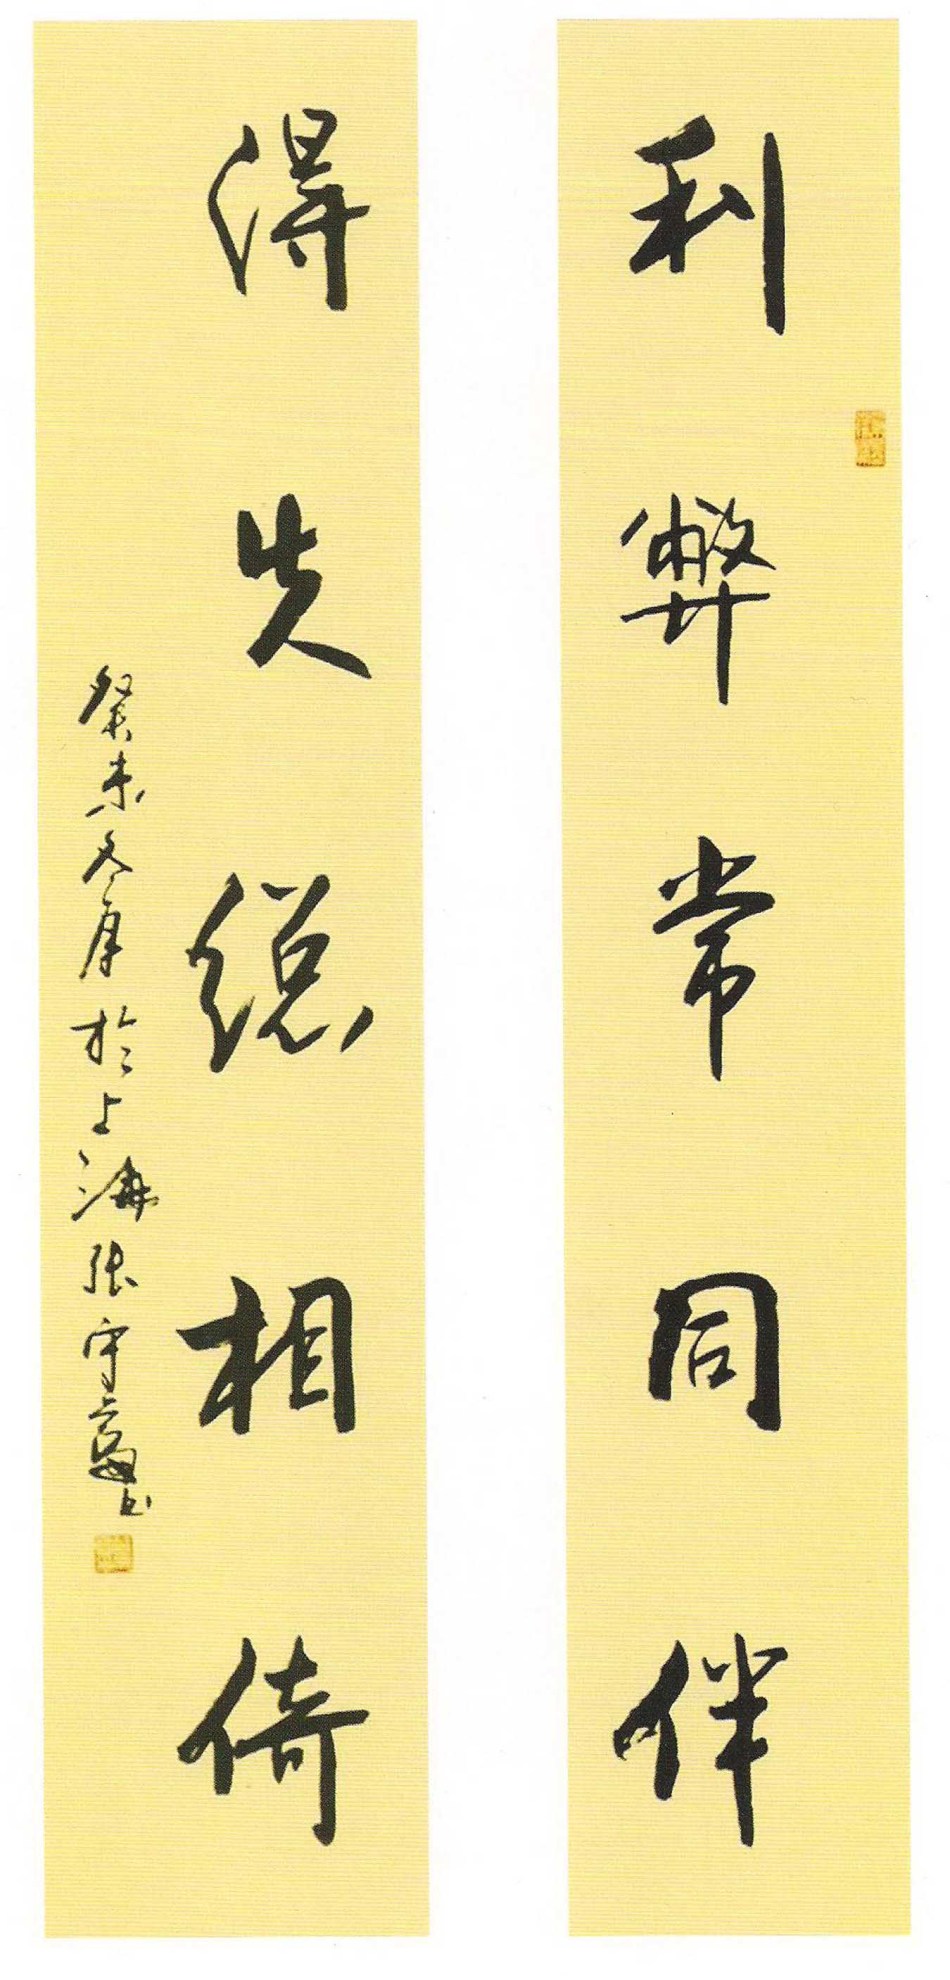 利弊常同伴
得失總相倚
癸未冬月於上海張守義書